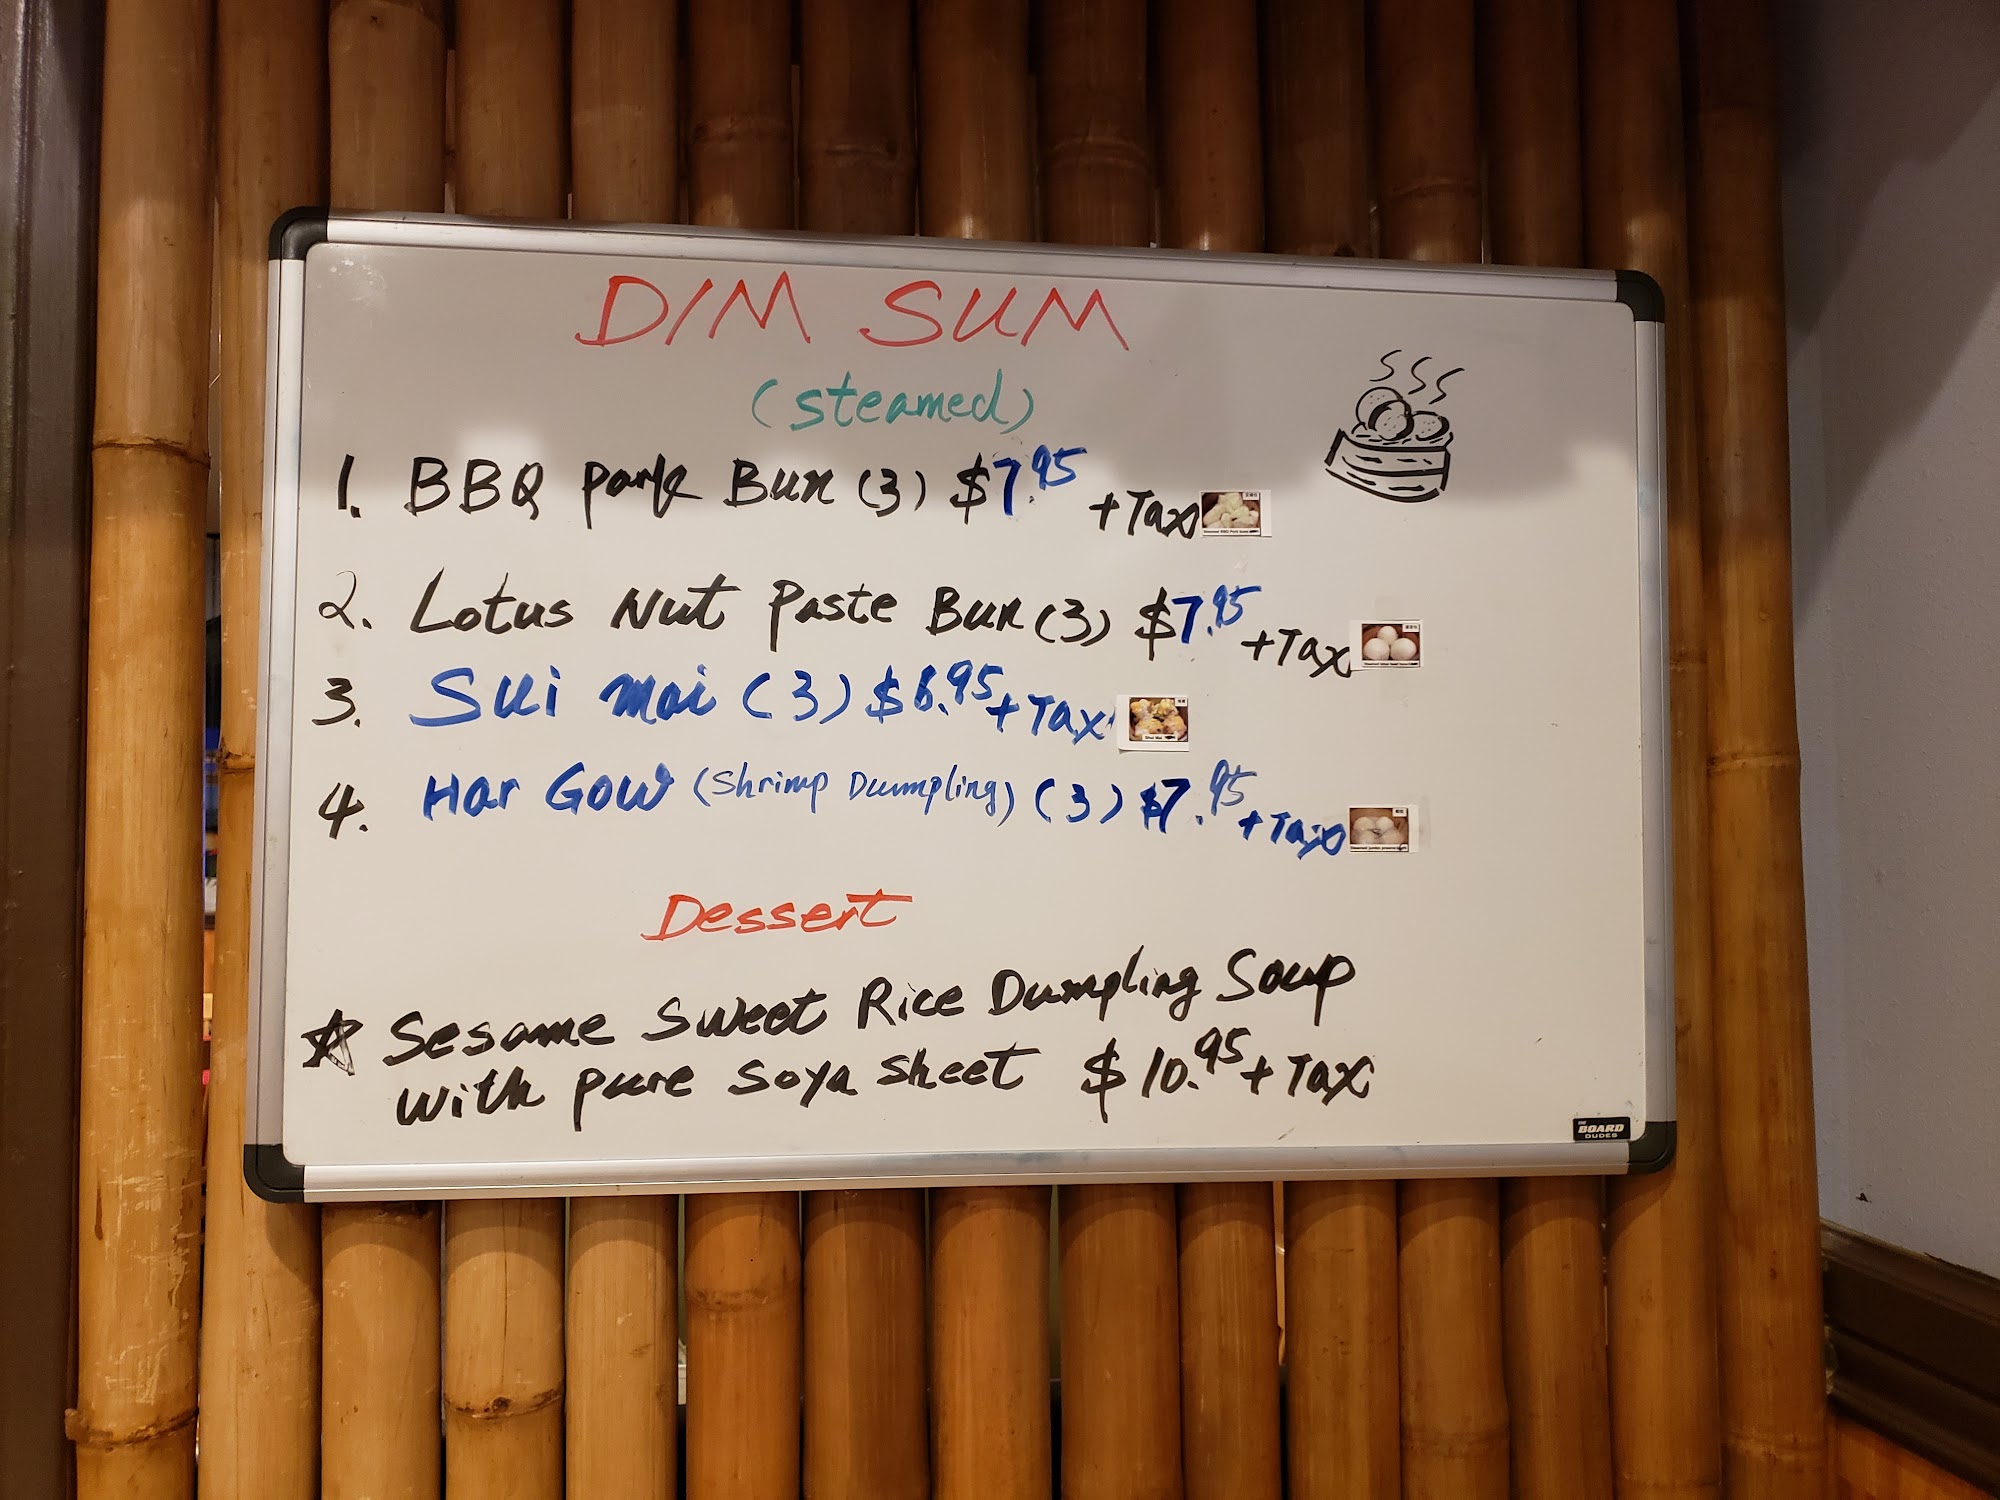 DIM SUM
(steamed)
1. BBQ Pork Bun (3) $7.95 + Tax
2. Lotus Nut Paste Bun (3) $7.95 + Tax
3. Sui mai (3) $6.95 + Tax
4. Har Gow (Shrimp Dumpling) (3) $7.95 + Tax
Dessert
Sesame Sweet Rice Dumpling Soup
with pure soya sheet $10.95 + Tax
THE BOARD DUDES